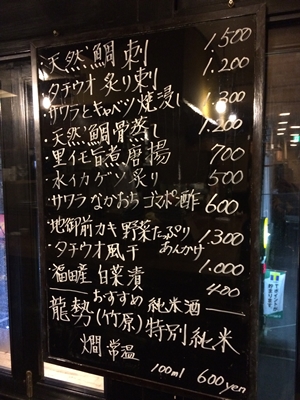 ・天然鯛刺 1.500
・タチウオ炙り刺 1.200
・サワラとキャベツ焼浸し 1.300
・天然鯛骨蒸し 1.200
・里イモ旨煮唐揚 700
・水イカゲソ炙り 500
・サワラながおちゴマポン酢 600
・地御前カキ野菜たっぷりあんかけ 1.300
・タチウオ風干 1.000
・福田産白菜漬 400
おすすめ純米酒
龍勢(竹原)特別純米
燗常温
100ml 600yen